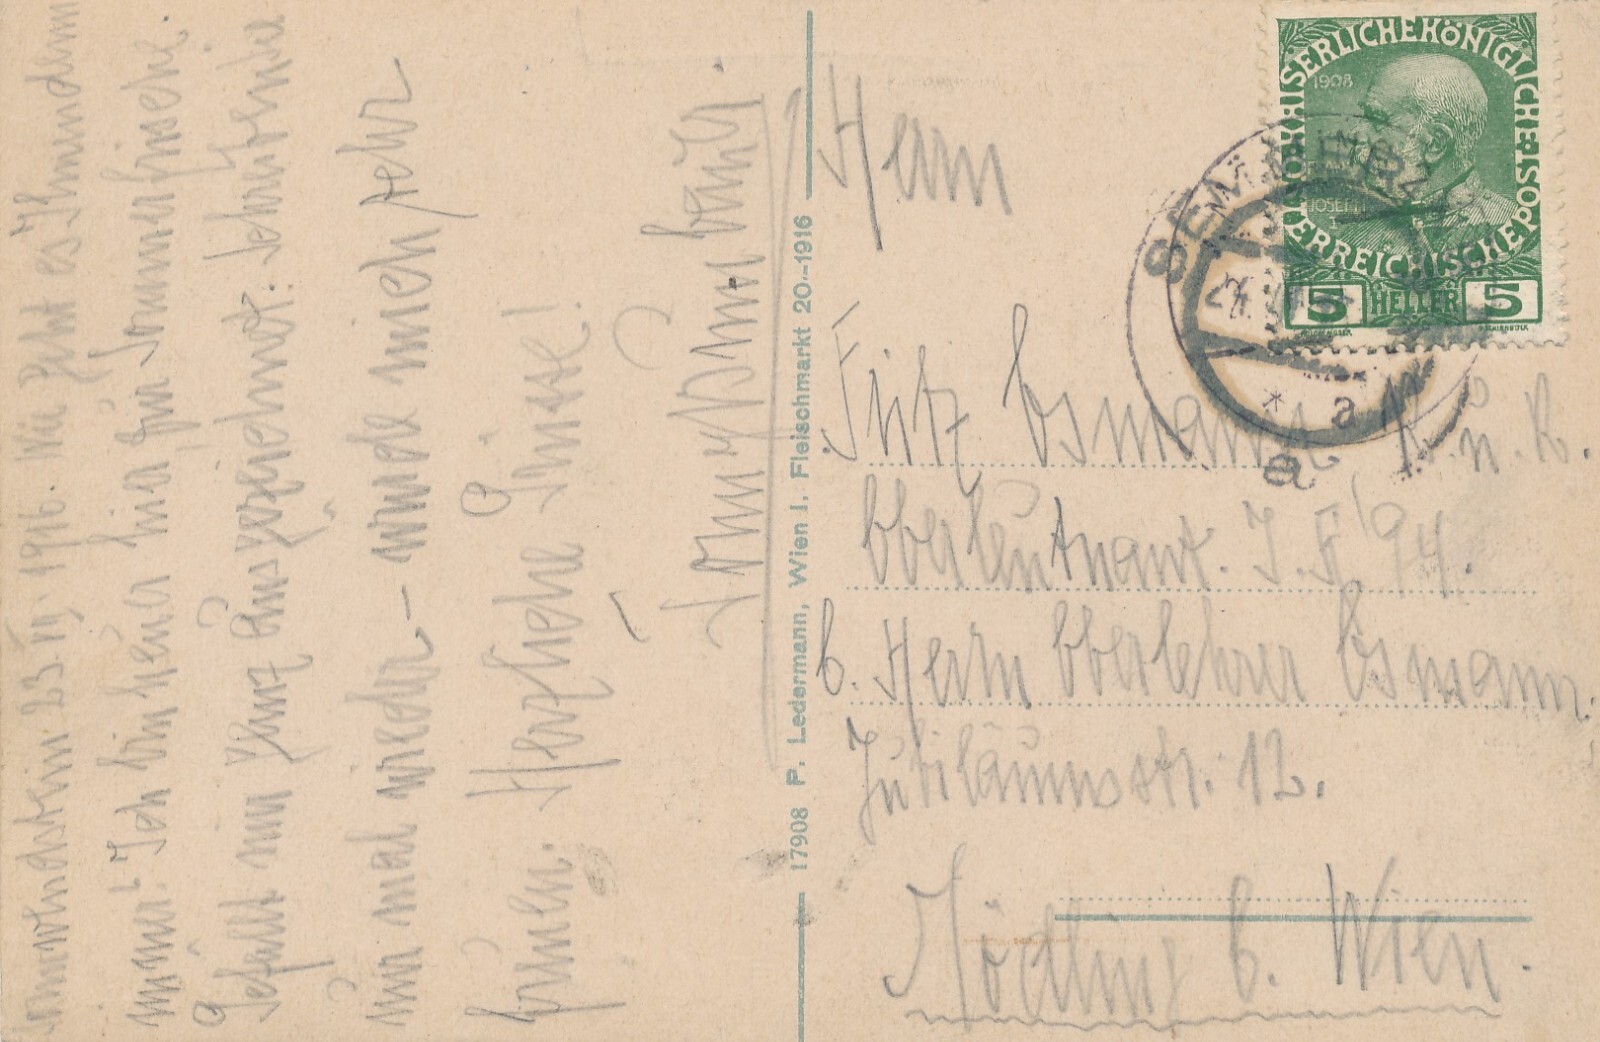 Sonnwendstein 23. VII. 1916. Wie geht es Ihnen denn
immer? Ich bin heuer hier zur Sommerfrische.
Gefällt mir ganz ausgezeichnet. Schreiben Sie
mir mal wieder – würde mich sehr
freuen. Herzliche Grüsse!
Bauer.
17908 P. Ledermann, Wien I. Fleischmarkt 20.–1916
KAISERLICHE KÖNIGLICHE ÖSTERREICHISCHE POST
1908
JOSEPH I
5 HELLER 5
SEMMERING
* a
a
Herrn
Fritz Osmann k. u. k.
Oberleutnant. I. R. 94.
b. Herrn Oberlehrer Osmann.
Jubiläumsstr. 12.
Mödling b. Wien.